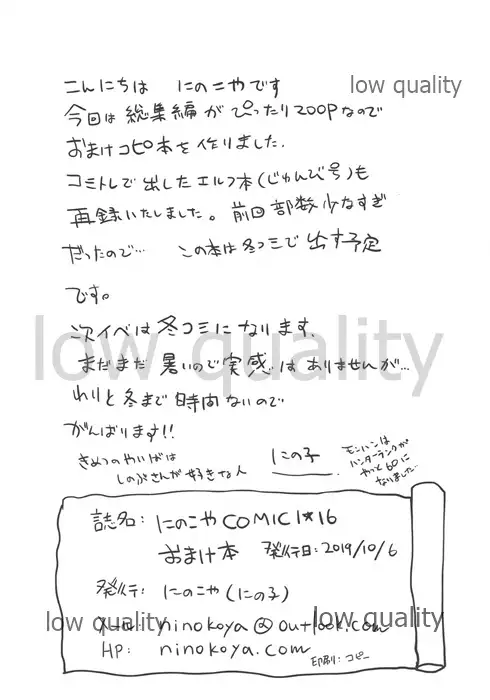 こんにちは にのこやです
low quality
今回は総集編がぴったり200Pなので
おまけコピ本を作りました.
コミトレで出したエルフ本(じゅんび号)も
再録いたしました。前回部数少なすぎ
だったので… この本は冬コミで出す予定
です。
low quality
次イベは冬コミになります.
まだまだ暑いので実感はありませんが…
わりと冬まで時間ないので
がんばります!!
きめつのやいばは
しのぶさんが好きな人
にの子
モンハンは
ハンターランクが
やっと60に
なりました…
誌名: にのこやCOMIC1★16
おまけ本 発行日:2019/10/6
発行: にのこや(にの子)
low quality
メール: ninokoya@outlook.com
low quality
HP: ninokoya.com
印刷:コピー